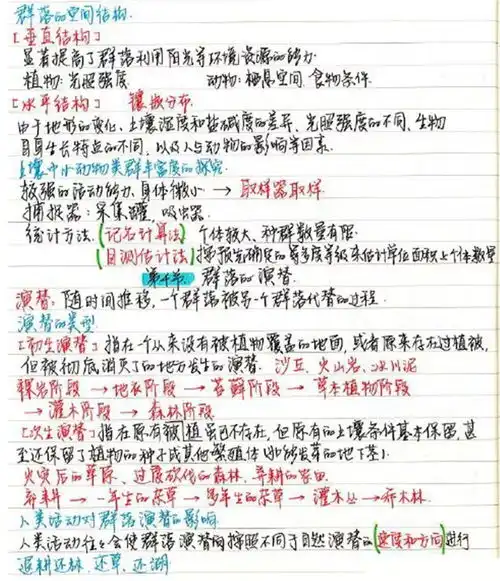 群落的空间结构.
[垂直结构]
显著提高了群落利用阳光等环境资源的能力.
植物: 光照强度 动物: 栖息空间, 食物条件.
[水平结构] 镶嵌分布.
由于地形的变化、土壤湿度和盐碱度的差异、光照强度的不同、生物
自身生长特点的不同, 以及人与动物的影响等因素.
土壤中小动物类群丰富度的探究.
较强的活动能力, 身体微小 → 取样器取样.
捕捉器: 采集罐, 吸虫器.
统计方法. (记名计算法) 个体较大、种群数量有限.
(目测估计法) 按预先确定的多度等级来估计单位面积上个体数量
第4节. 群落的演替.
演替: 随时间推移, 一个群落被另一个群落代替的过程.
演替的类型.
[初生演替] 指在一个从来没有被植物覆盖的地面, 或者原来存在过植被,
但被彻底消灭了的地方发生的演替. 沙丘、火山岩、冰川泥
裸岩阶段 → 地衣阶段 → 苔藓阶段 → 草本植物阶段
→ 灌木阶段 → 森林阶段
[次生演替] 指在原有被植虽已不存在, 但原有的土壤条件基本保留, 甚
至还保留了植物的种子或其他繁殖体(如能发芽的地下茎).
火灾后的草原、过度砍伐的森林、弃耕的农田.
弃耕 → 一年生的杂草 → 多年生的杂草 → 灌木丛 → 乔木林.
人类活动对群落演替的影响
人类活动往往会使群落演替按照不同于自然演替的(速度和方向)进行
退耕还林, 还草, 还湖